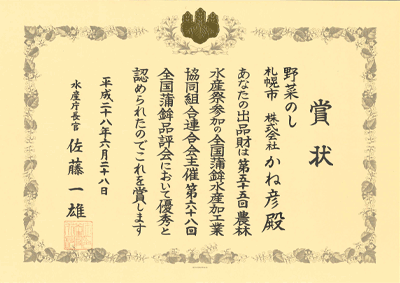 賞状
野菜のし
札幌市 株式会社 かね彦 殿
あなたの出品財は第五十五回農林
水産祭参加の全国蒲鉾水産加工業
協同組合連合会主催第六十八回
全国蒲鉾品評会において優秀と
認められたのでこれを賞します
平成二十八年六月二十八日
水産庁長官 佐藤一雄